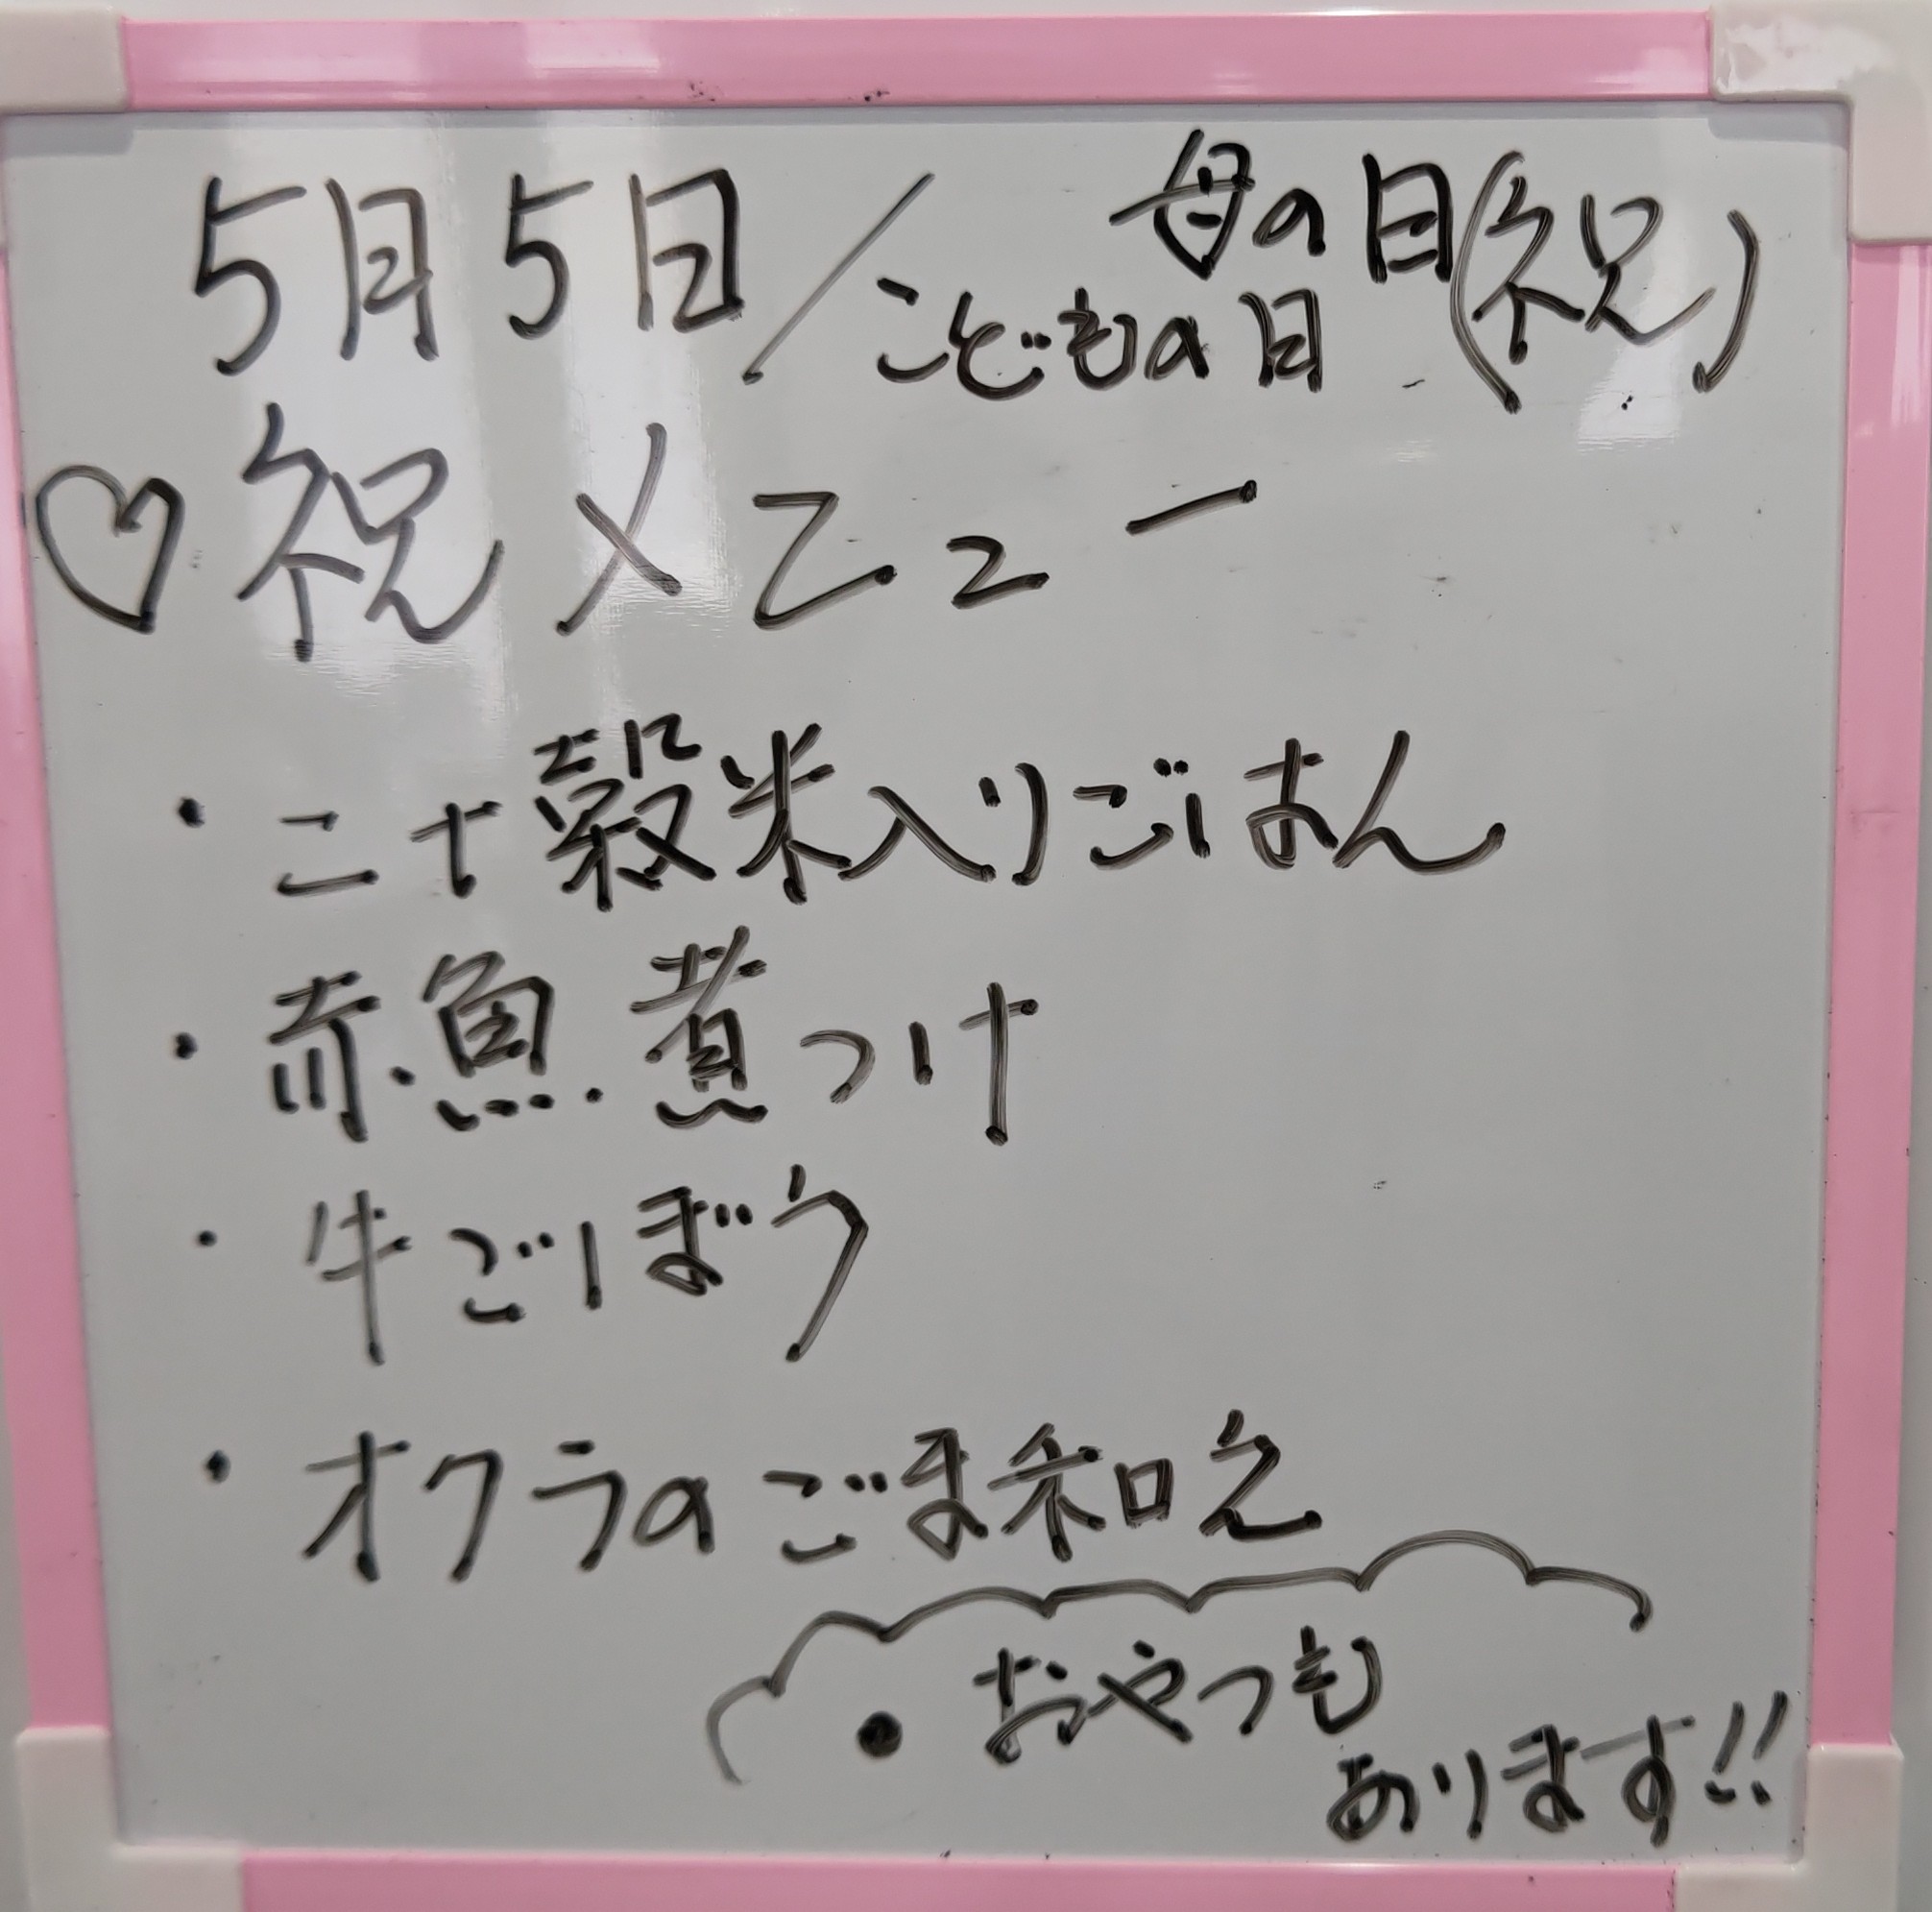 5月5日/母の日(祝)
こどもの日
♡祝メニュー
・二十穀米入りごはん
・赤魚煮つけ
・牛ごぼう
・オクラのごま和え
・おやつも
あります!!